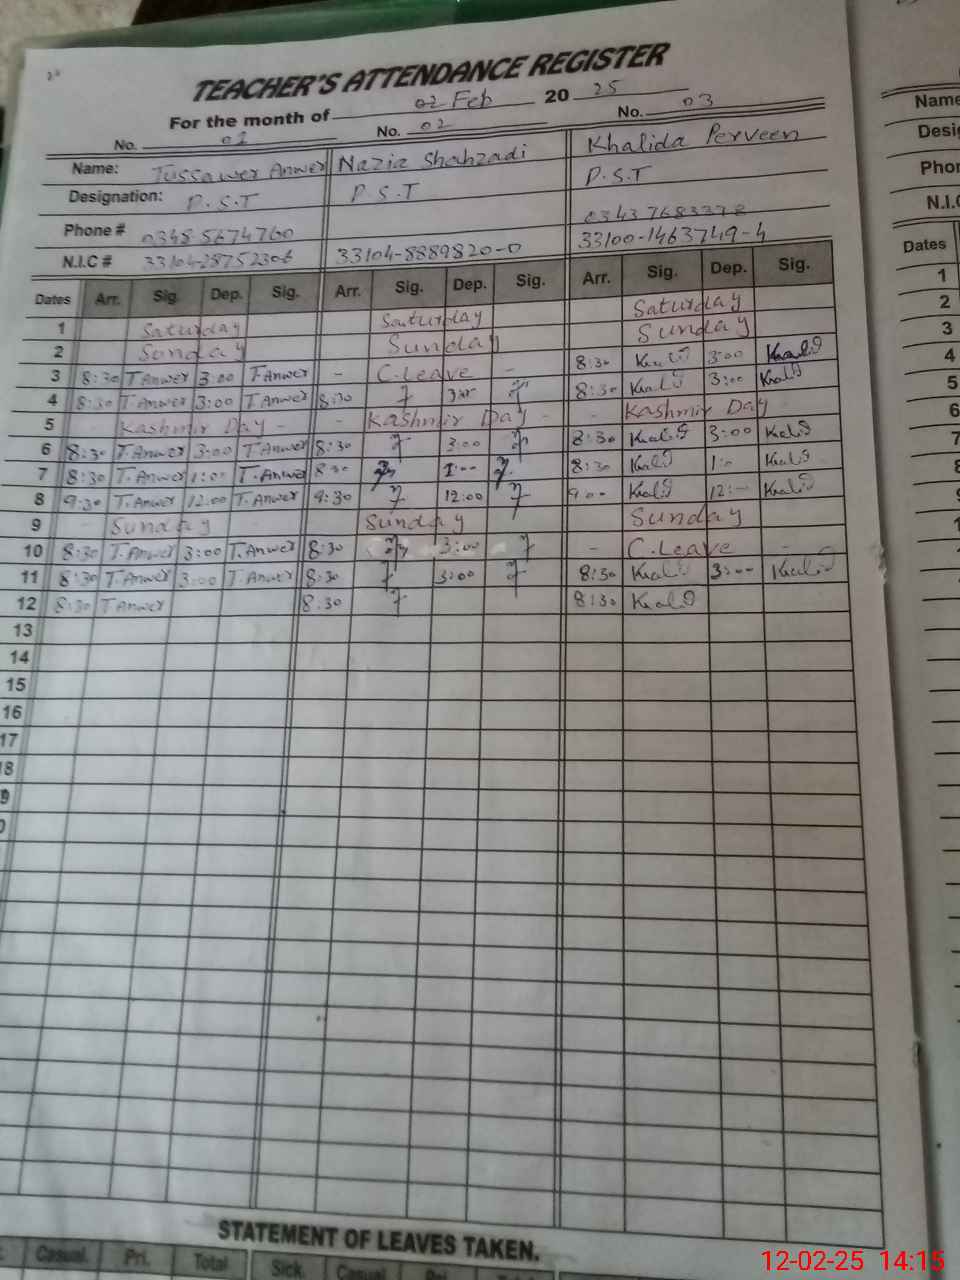 TEACHER'S ATTENDANCE REGISTER
For the month of 02 Feb 2025
No. 01 No. 02 No. 03
Name: Tussawer Anwer Nazia Shahzadi Khalida Perveen
Designation: P.S.T P.S.T P.S.T
Phone # 0348 5674760 03437683378
N.I.C # 33104-28752306 33104-8889820-0 33100-1463749-4
Dates Arr. Sig. Dep. Sig. Arr. Sig. Dep. Sig. Arr. Sig. Dep. Sig.
1 Saturday Saturday Saturday
2 Sunday Sunday Sunday
3 8:30 T.Anwer 3:00 T.Anwer - C.Leave - 8:30 3:00
4 8:30 T.Anwer 3:00 T.Anwer 8:30 3:00 8:30 3:00
5 Kashmir Day - Kashmir Day - - Kashmir Day -
6 8:30 T.Anwer 3:00 T.Anwer 8:30 3:00 8:30 3:00
7 8:30 T.Anwer 1:00 T.Anwer 8:30 1:-- 8:30 1:0
8 9:30 T.Anwer 12:00 T.Anwer 9:30 12:00 9:00 12:--
9 Sunday Sunday Sunday
10 8:30 T.Anwer 3:00 T.Anwer 8:30 3:00 - C.Leave -
11 8:30 T.Anwer 3:00 T.Anwer 8:30 3:00 8:30 3:--
12 8:30 T.Anwer 8:30 8:30
13
14
15
16
17
18
STATEMENT OF LEAVES TAKEN.
Casual Pri. Total Sick Casual
Name
Phon
N.I.C
Dates
1
2
3
4
5
6
7
12-02-25 14:15